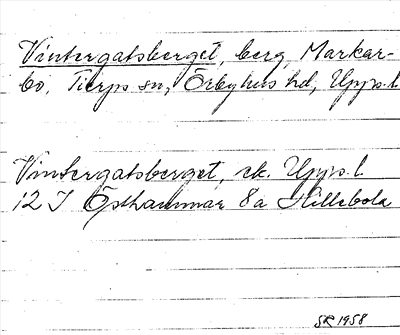 Vintergatsberget, berg, Markar-
bo, Tierps sn, Örbyhus hd, Upps.l.
Vintergatsberget, ek. Upps.l.
12 I Östhammar 8a Hillebola
SR 1958